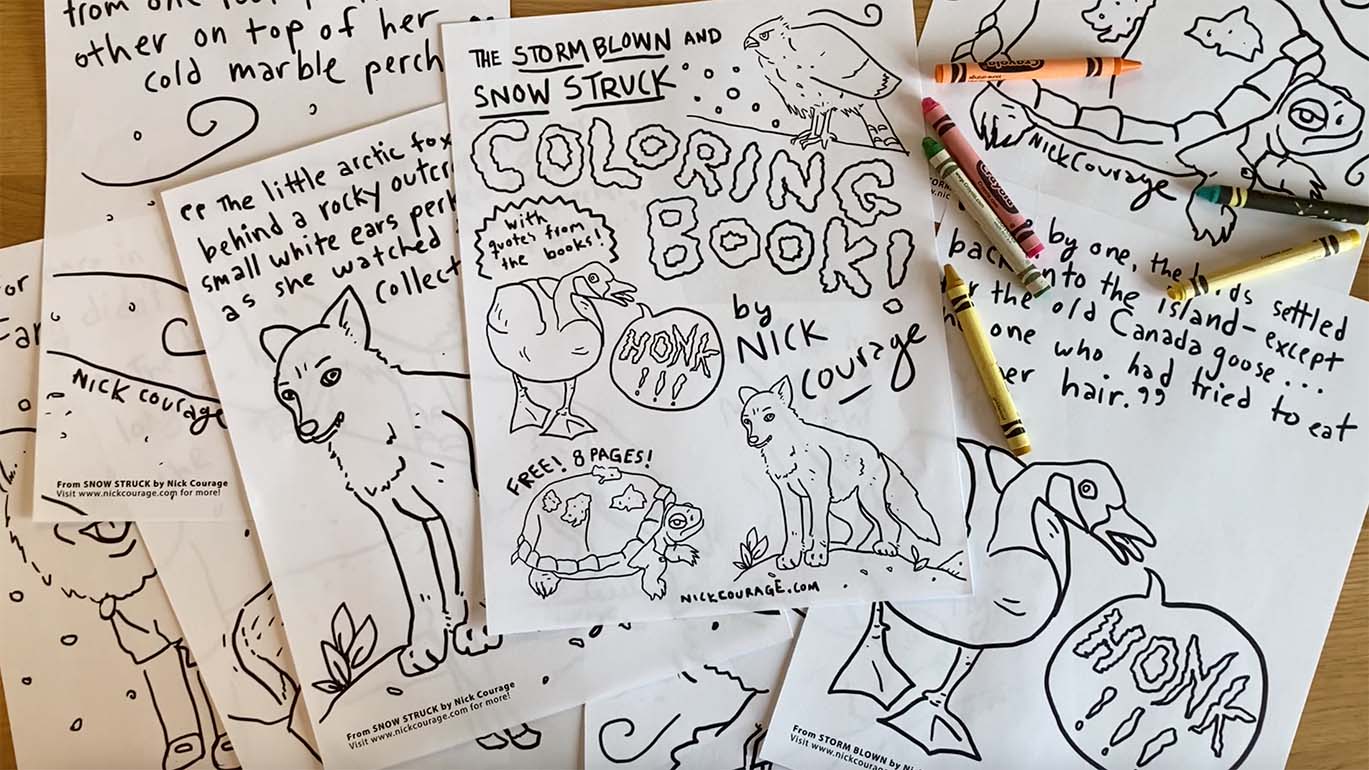 from one
other on top of her
cold marble perch
NICK COURAGE
From SNOW STRUCK by Nick Courage
Visit www.nickcourage.com for more!
"The little arctic fox
behind a rocky
small white ears
as she watched
collect
From SNOW STRUCK by Nick Courage
Visit www.nickcourage.com for more!
THE STORM BLOWN AND
SNOW STRUCK
COLORING
BOOK!
with
quotes from
the books!
HONK
!!!
by
NICK
COURAGE
FREE! 8 PAGES!
NICKCOURAGE.COM
Crayola
Crayola
NICK COURAGE
by one, the
settled
into the island- except
the old Canada goose...
one who had tried to eat
hair."
HONK
!!!
From STORM BLOWN by Nick
Visit www.nickcourage